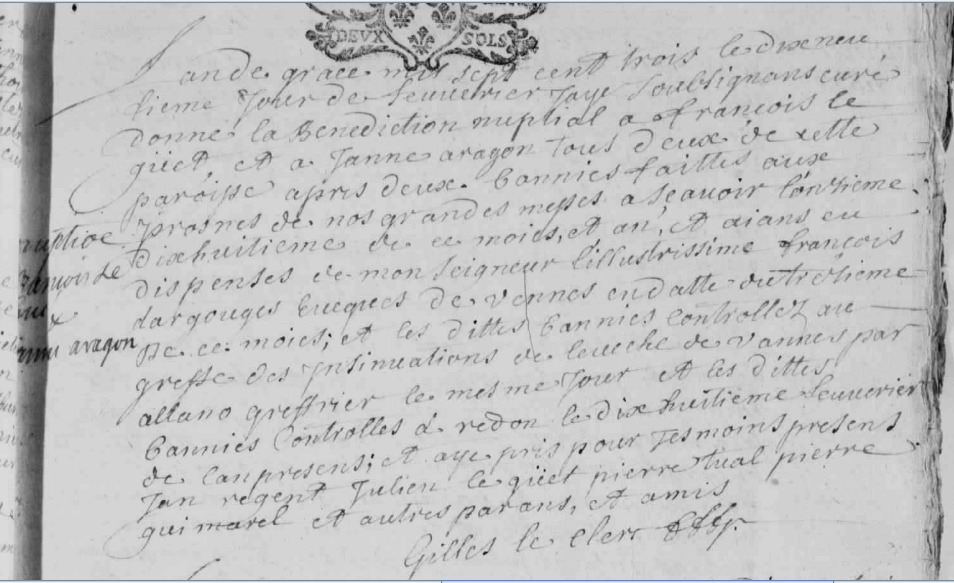 DEVX SOLS
Lan de grace mil sept cent trois le dixneu
fieme Jour de feuverier Jaye soubsignans curé
donne la Benediction nuptial a francois le
guet et a Janne aragon tous deux de cette
paroisse apres deux bannies faittes aux
prosnes de nos grandes messes a scavoir lonzieme
dixhuitieme de ce moies, et an, et aians eu
dispenses de mon seigneur lillustrissime francois
dargouges Evecques de vennes en datte du treiseme
de ce moies; et les dittes bannies Controllez au
greffe des Insinuations de leveche de vannes par
allano greffrier le mesme Jour et les dittes
bannies Controlles à redon le dix huitieme feuverier
de lan presens; et aye pris pour Tesmoins presens
Jan regent Julien le guet pierre tual pierre
qui marel et autres parans, et amis
Gilles le Clerc
nuptiae
francois le
&
aragon